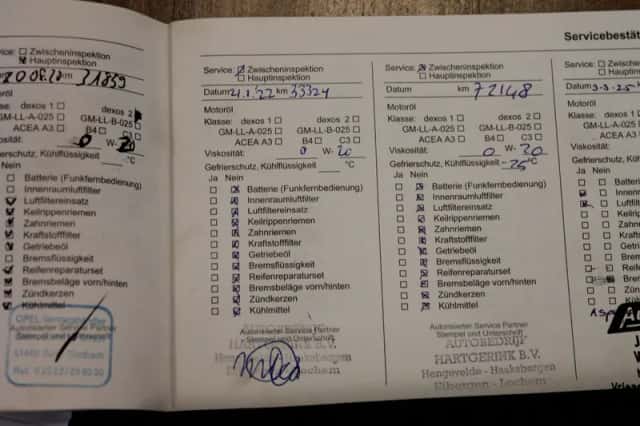 Servicebestät
Service: Zwischeninspektion
Hauptinspektion
km 31839
dexos 1 dexos 2
GM-LL-A-025 GM-LL-B-025
ACEA A3 B4 C3
0 W- 20
Gefrierschutz, Kühlflüssigkeit °C
Nein
Batterie (Funkfernbedienung)
Innenraumluftfilter
Luftfiltereinsatz
Keilrippenriemen
Zahnriemen
Kraftstofffilter
Getriebeöl
Bremsflüssigkeit
Reifenreparaturset
Bremsbeläge vorn/hinten
Zündkerzen
Kühlmittel
Autorisierter Service Partner
Stempel und Unterschrift
Service: Zwischeninspektion
Hauptinspektion
Datum 21.1.22 km 53324
Motoröl
Klasse: dexos 1 dexos 2
GM-LL-A-025 GM-LL-B-025
ACEA A3 B4 C3
Viskosität: 0 W- 20
Gefrierschutz, Kühlflüssigkeit °C
Ja Nein
Batterie (Funkfernbedienung)
Innenraumluftfilter
Luftfiltereinsatz
Keilrippenriemen
Zahnriemen
Kraftstofffilter
Getriebeöl
Bremsflüssigkeit
Reifenreparaturset
Bremsbeläge vorn/hinten
Zündkerzen
Kühlmittel
Autorisierter Service Partner
Stempel und Unterschrift
HARTGERINK B.V.
Hengevelde - Haaksbergen
Service: Zwischeninspektion
Hauptinspektion
Datum km 72148
Motoröl
Klasse: dexos 1 dexos 2
GM-LL-A-025 GM-LL-B-025
ACEA A3 B4 C3
Viskosität: 0 W- 20
Gefrierschutz, Kühlflüssigkeit -25 °C
Ja Nein
Batterie (Funkfernbedienung)
Innenraumluftfilter
Luftfiltereinsatz
Keilrippenriemen
Zahnriemen
Kraftstofffilter
Getriebeöl
Bremsflüssigkeit
Reifenreparaturset
Bremsbeläge vorn/hinten
Zündkerzen
Kühlmittel
Autorisierter Service Partner
Stempel und Unterschrift
AUTOBEDRIJF
HARTGERINK B.V.
Hengevelde - Haaksbergen
Eibergen - Lochem
Service:
Datum 3-3-25
Motoröl
Klasse:
GM-LL-A
ACE
Viskosität:
Gefrierschutz
Ja Nein